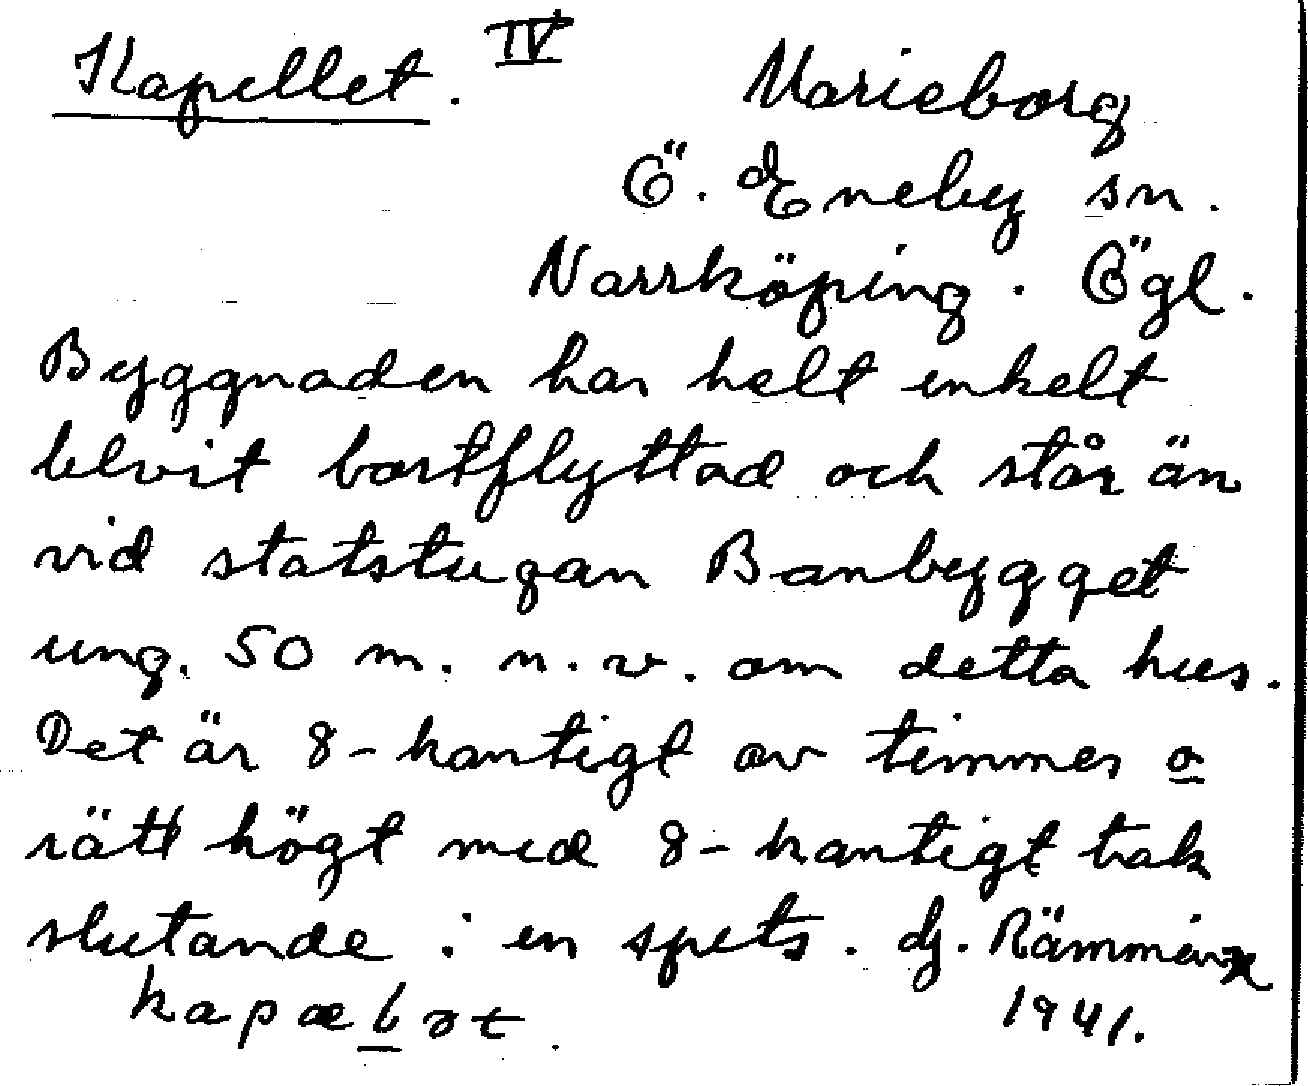 Kapellet. IV
Marieborg
Ö. Eneby sn.
Norrköping. Ögl.
Byggnaden har helt enkelt
blvit bortflyttad och står än
vid statstugan Banbygget
ung. 50 m. n.v. om detta hus.
Det är 8-kantigt av timmer o
rätt högt med 8-kantigt tak
slutande i en spets.
kapæḻət.
1941.